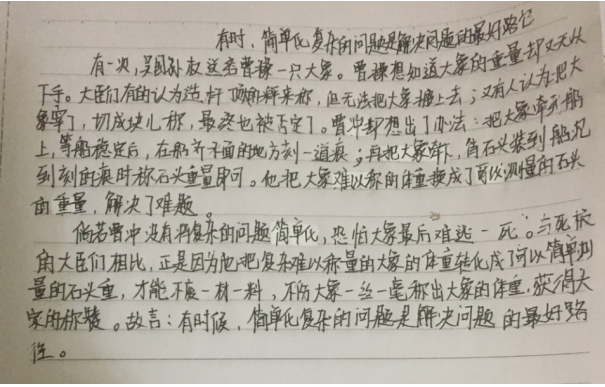 有时，简单化复杂的问题是解决问题的最好路径
有一次，吴国孙权送给曹操一只大象。曹操想知道大象的重量却又无从
下手。大臣们有的认为造一杆顶大的秤来称，但无法把大象搬上去；又有人认为把大
象宰了，切成块儿称，最终也被否定了。曹冲却想出了办法：把大象牵到船
上，等船稳定后，在船齐水面的地方刻一道痕；再把大象牵下，用石头装到船沉
到刻的痕时称石头重量即可。他把大象难以称的体重换成了可以测量的石头
的重量，解决了难题。
倘若曹冲没有将复杂的问题简单化，恐怕大象最后难逃一死。与死板
的大臣们相比，正是因为他把复杂难以称量的大象的体重转化成了可以简单测
量的石头重，才能不废一材一料，不伤大象一丝一毫称出大象的体重，获得大
家的称赞。故言：有时候，简单化复杂的问题是解决问题的最好路
径。